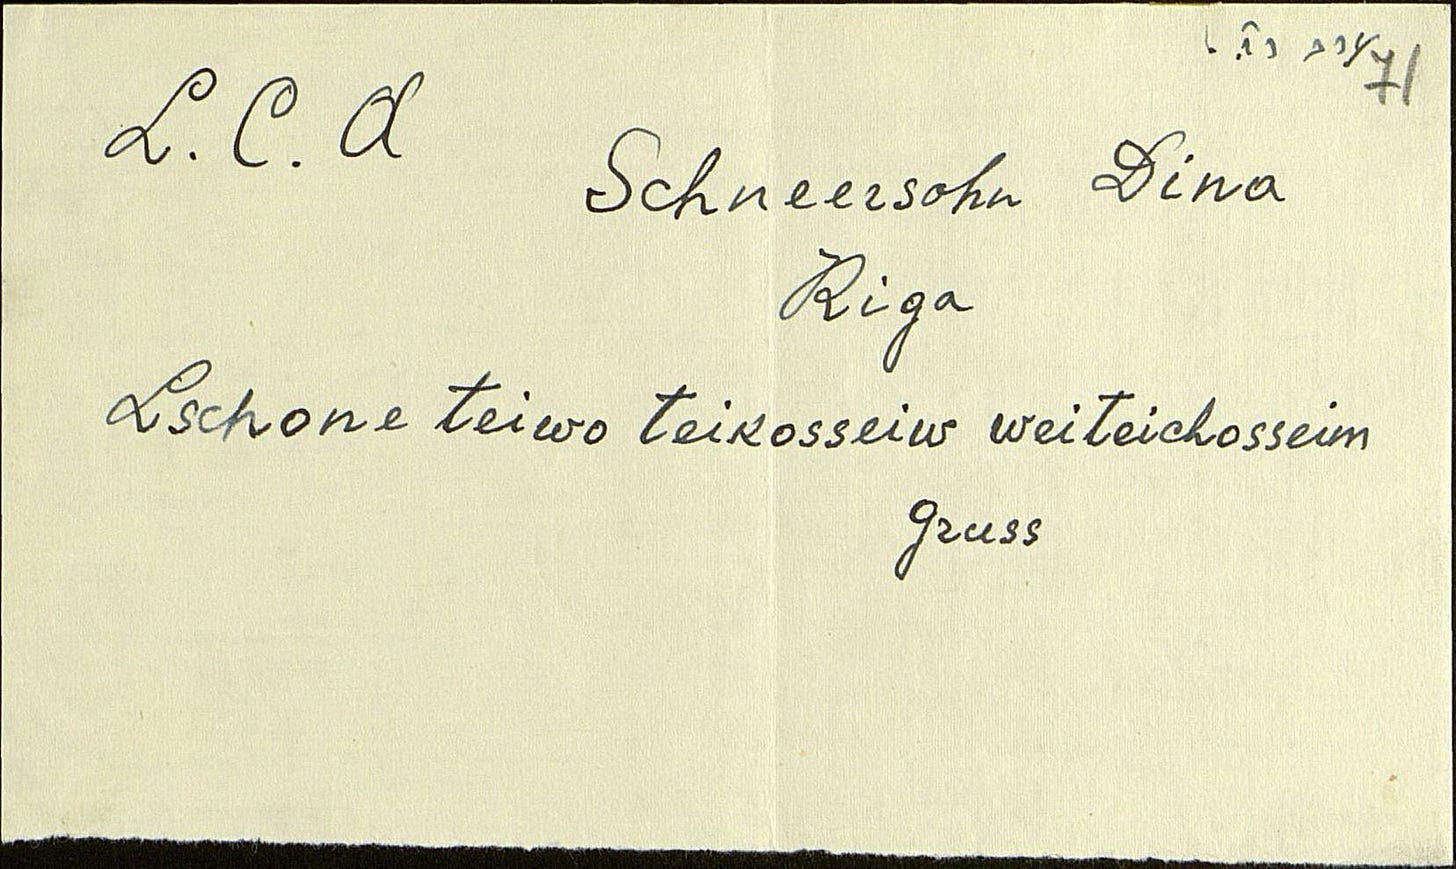 71
L. C. A
Schneersohn Dina
Riga
Lschone teiwo teikosseiw weiteichosseim
gruss